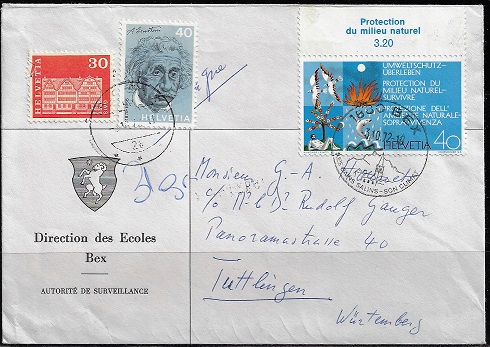 Protection
du milieu naturel
3.20
30
HELVETIA
A. Einstein
40
HELVETIA
UMWELTSCHUTZ-
ÜBERLEBEN
PROTECTION DU
MILIEU NATUREL-
SURVIVRE
PROTEZIONE DELL'
NATURALE-
SOPRAVVIVENZA
HELVETIA 40
1880 BEX
.10.72-
SES BAINS SALINS-SON CLIMAT
Direction des Ecoles
Bex
AUTORITÉ DE SURVEILLANCE
Monsieur G.-A.
c/o Mr & Dr Rudolf Gauger
Panoramastraße 40
Tuttlingen
Württemberg